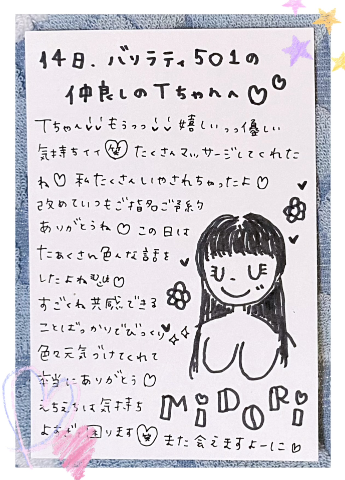 14日、バリラティ501の
仲良しのTちゃんへ♡♡
Tちゃん もうっっ 嬉しいっっ優しい
気持ちイイ 笑 たくさんマッサージしてくれた
ね♡ 私たくさんいやされちゃったよ♡
改めていつもご指名ご予約
ありがとうね♡ この日は
たぁくさん色んな話を
したよね
すごくね共感できる
ことばっかりでびっくり
色々元気づけてくれて
本当にありがとう♡
えちえちは気持ち
よすぎ 困ります♡ また会えますよーに♡
MIDORI